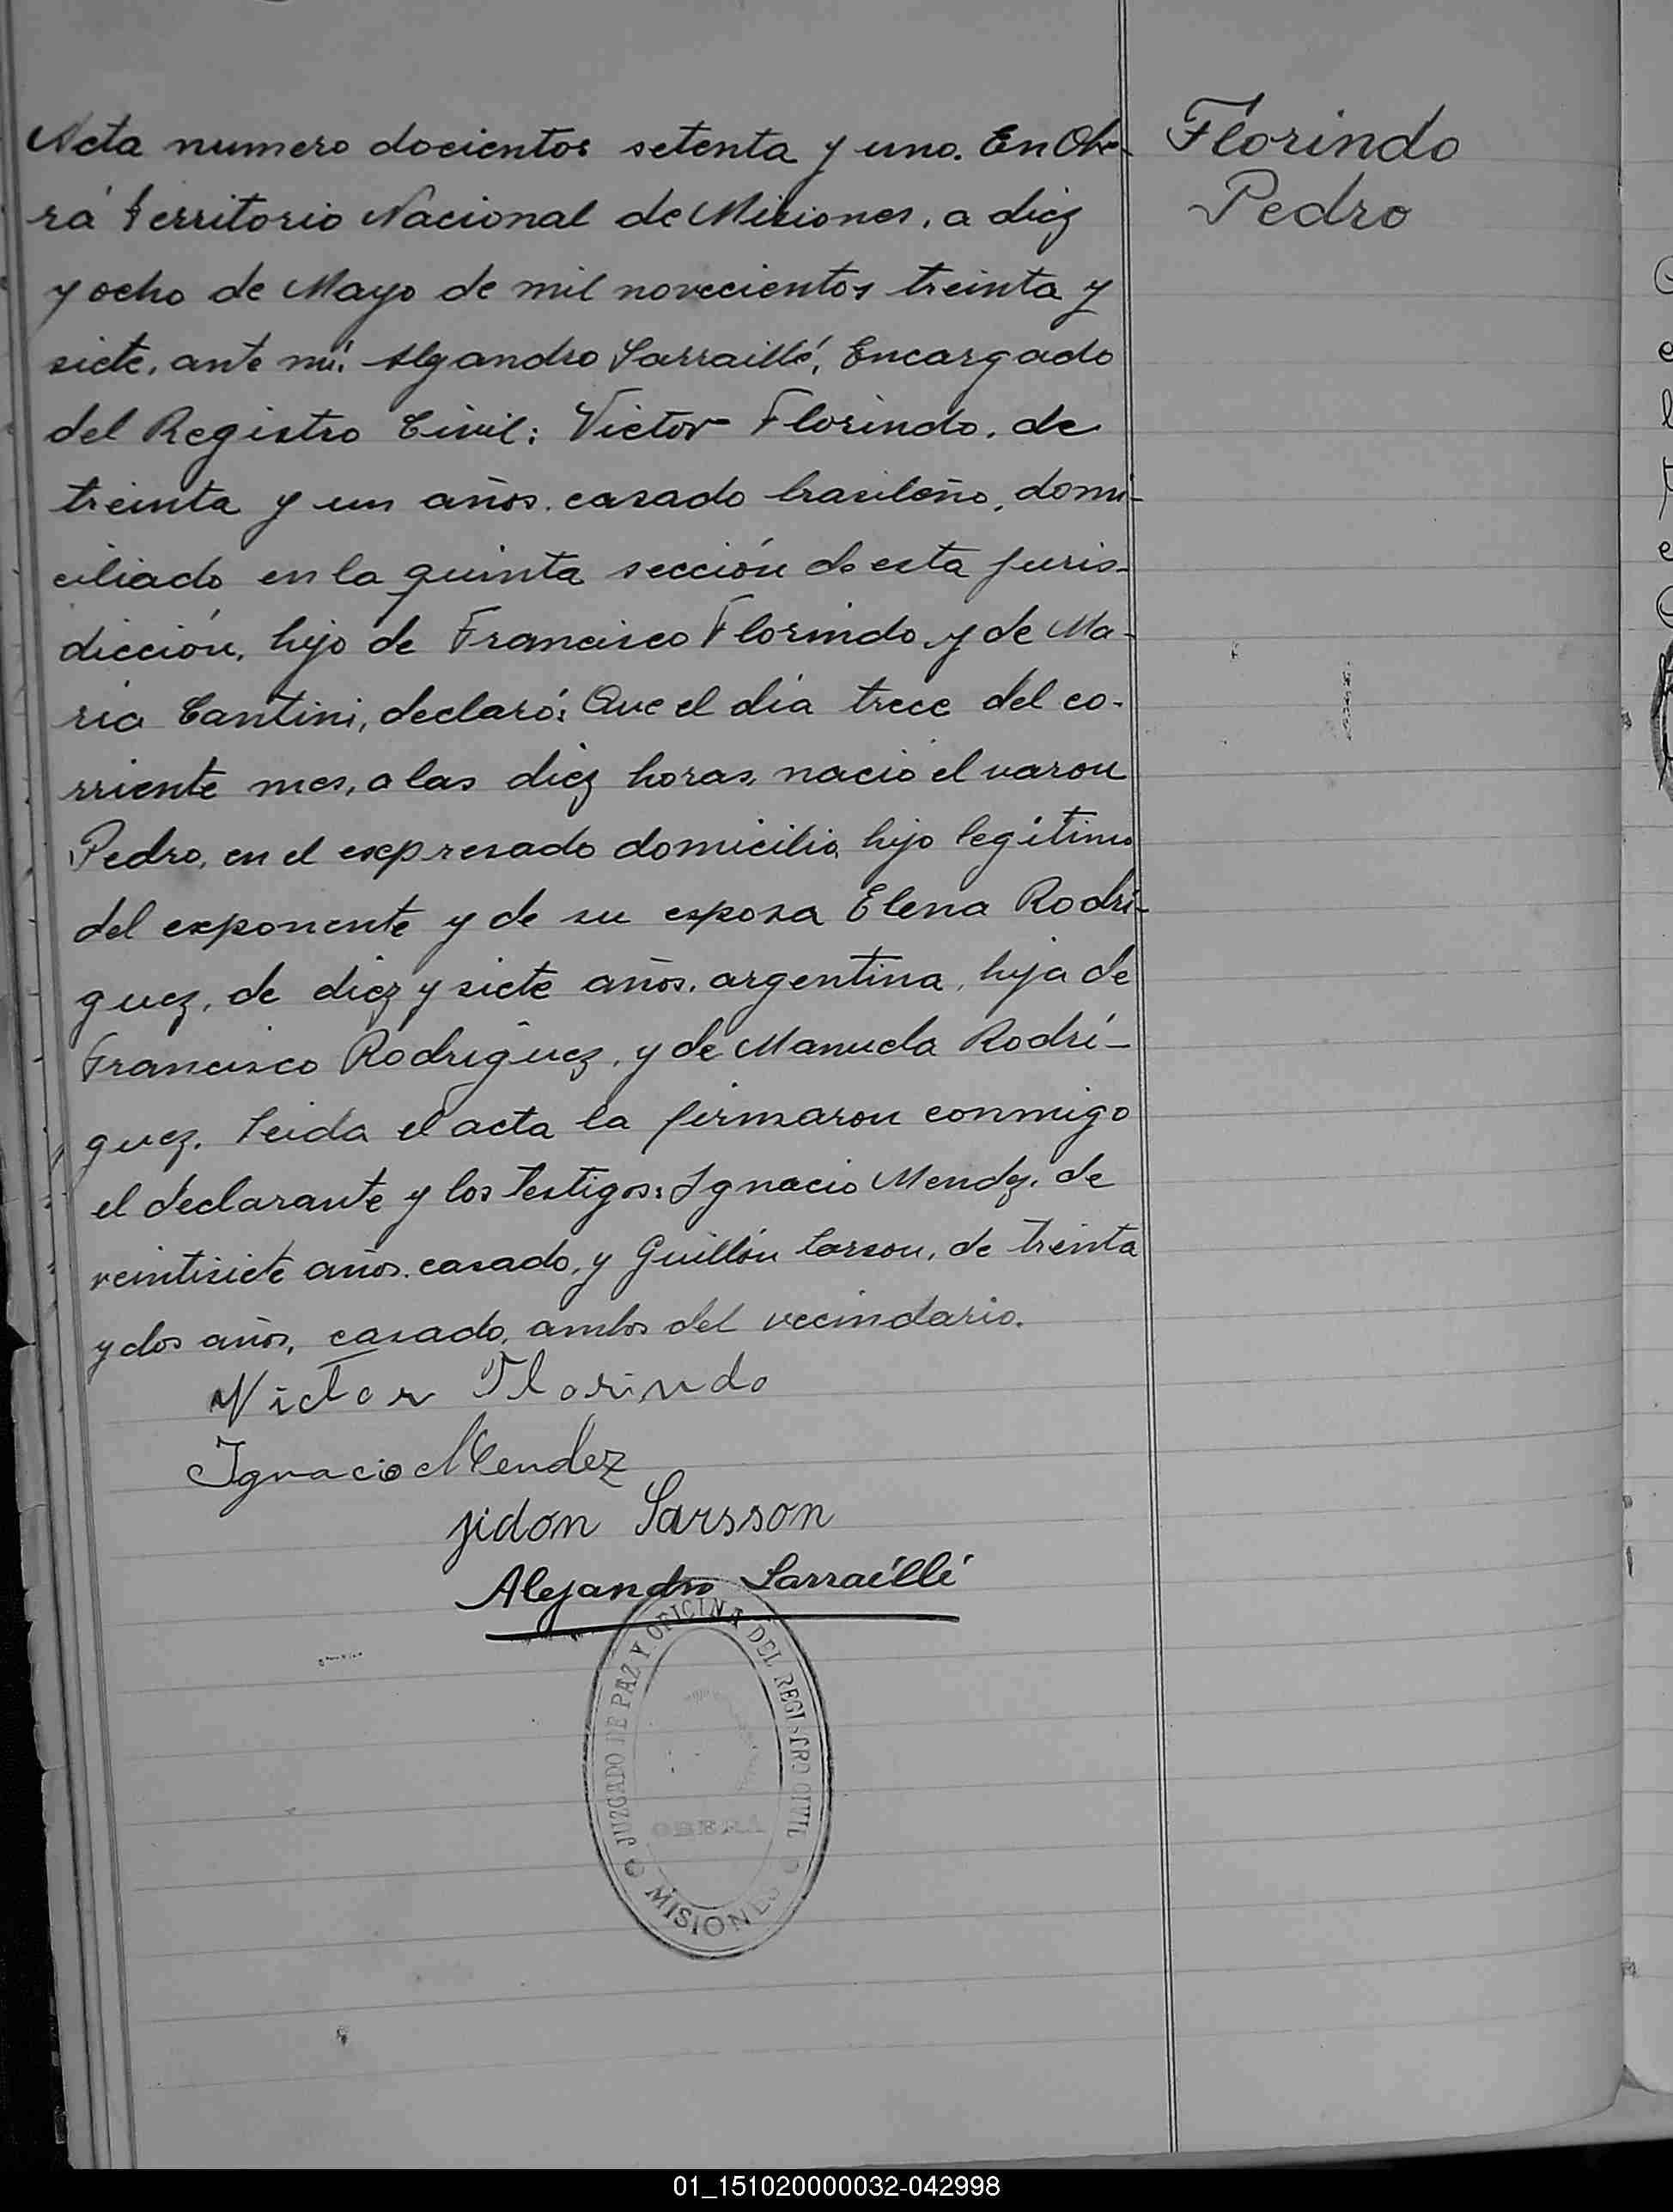 Acta numero docientos setenta y uno. En Obe-
rá territorio Nacional de Misiones, a diez
y ocho de Mayo de mil novecientos treinta y
siete, ante mí: Alejandro Sarraillé, Encargado
del Registro Civil: Victor Florindo, de
treinta y un años, casado brasileño, domi-
ciliado en la quinta sección de esta juris-
dicción, hijo de Francisco Florindo y de Ma-
ria Cantini, declaró: Que el día trece del co-
rriente mes, a las diez horas, nació el varon
Pedro, en el expresado domicilio, hijo legítimo
del exponente y de su esposa Elena Rodrí-
guez, de diez y siete años, argentina, hija de
Francisco Rodríguez, y de Manuela Rodrí-
guez. Leida el acta la firmaron conmigo
el declarante y los testigos: Ignacio Mendez, de
veintisiete años, casado, y Guillón Larson, de treinta
y dos años, casado, ambos del vecindario.
Victor Florindo
Ignacio Mendez
jidon Larsson
Alejandro Sarraillé
JUZGADO DE PAZ Y OFICINA DEL REGISTRO CIVIL
OBERA
MISIONES
Florindo
Pedro
01_151020000032-042998